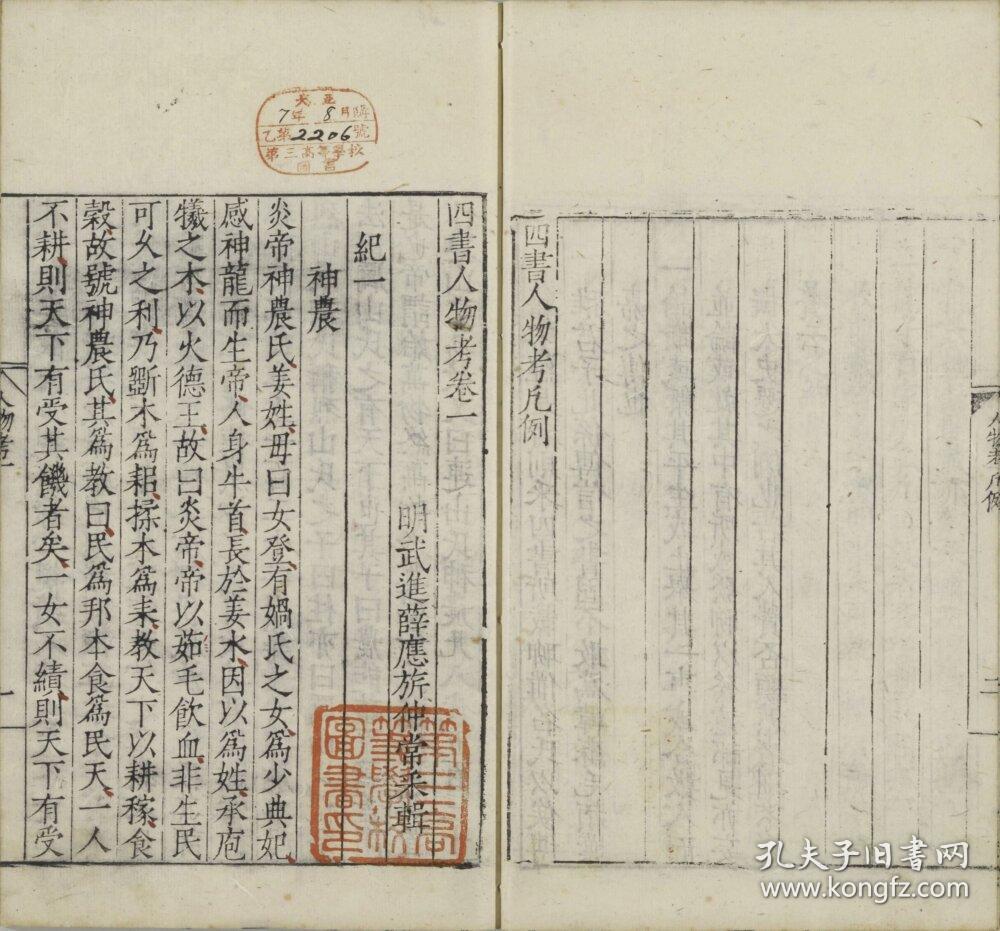 四書人物考凡例
二
四書人物考卷一
明武進薛應旂仲常采輯
紀一
神農
炎帝神農氏姜姓母曰女登有媧氏之女為少典妃
感神龍而生帝人身牛首長於姜水因以為姓承庖
犧之木以火德王故曰炎帝帝以茹毛飲血非生民
可久之利乃斲木為耜揉木為耒教天下以耕稼食
穀故號神農氏其為教曰民為邦本食為民天一人
不耕則天下有受其饑者矣一女不績則天下有受
人物考一
一
7年 8月
乙第2206號
第三高等學校
圖書
孔夫子旧书网
www.kongfz.com